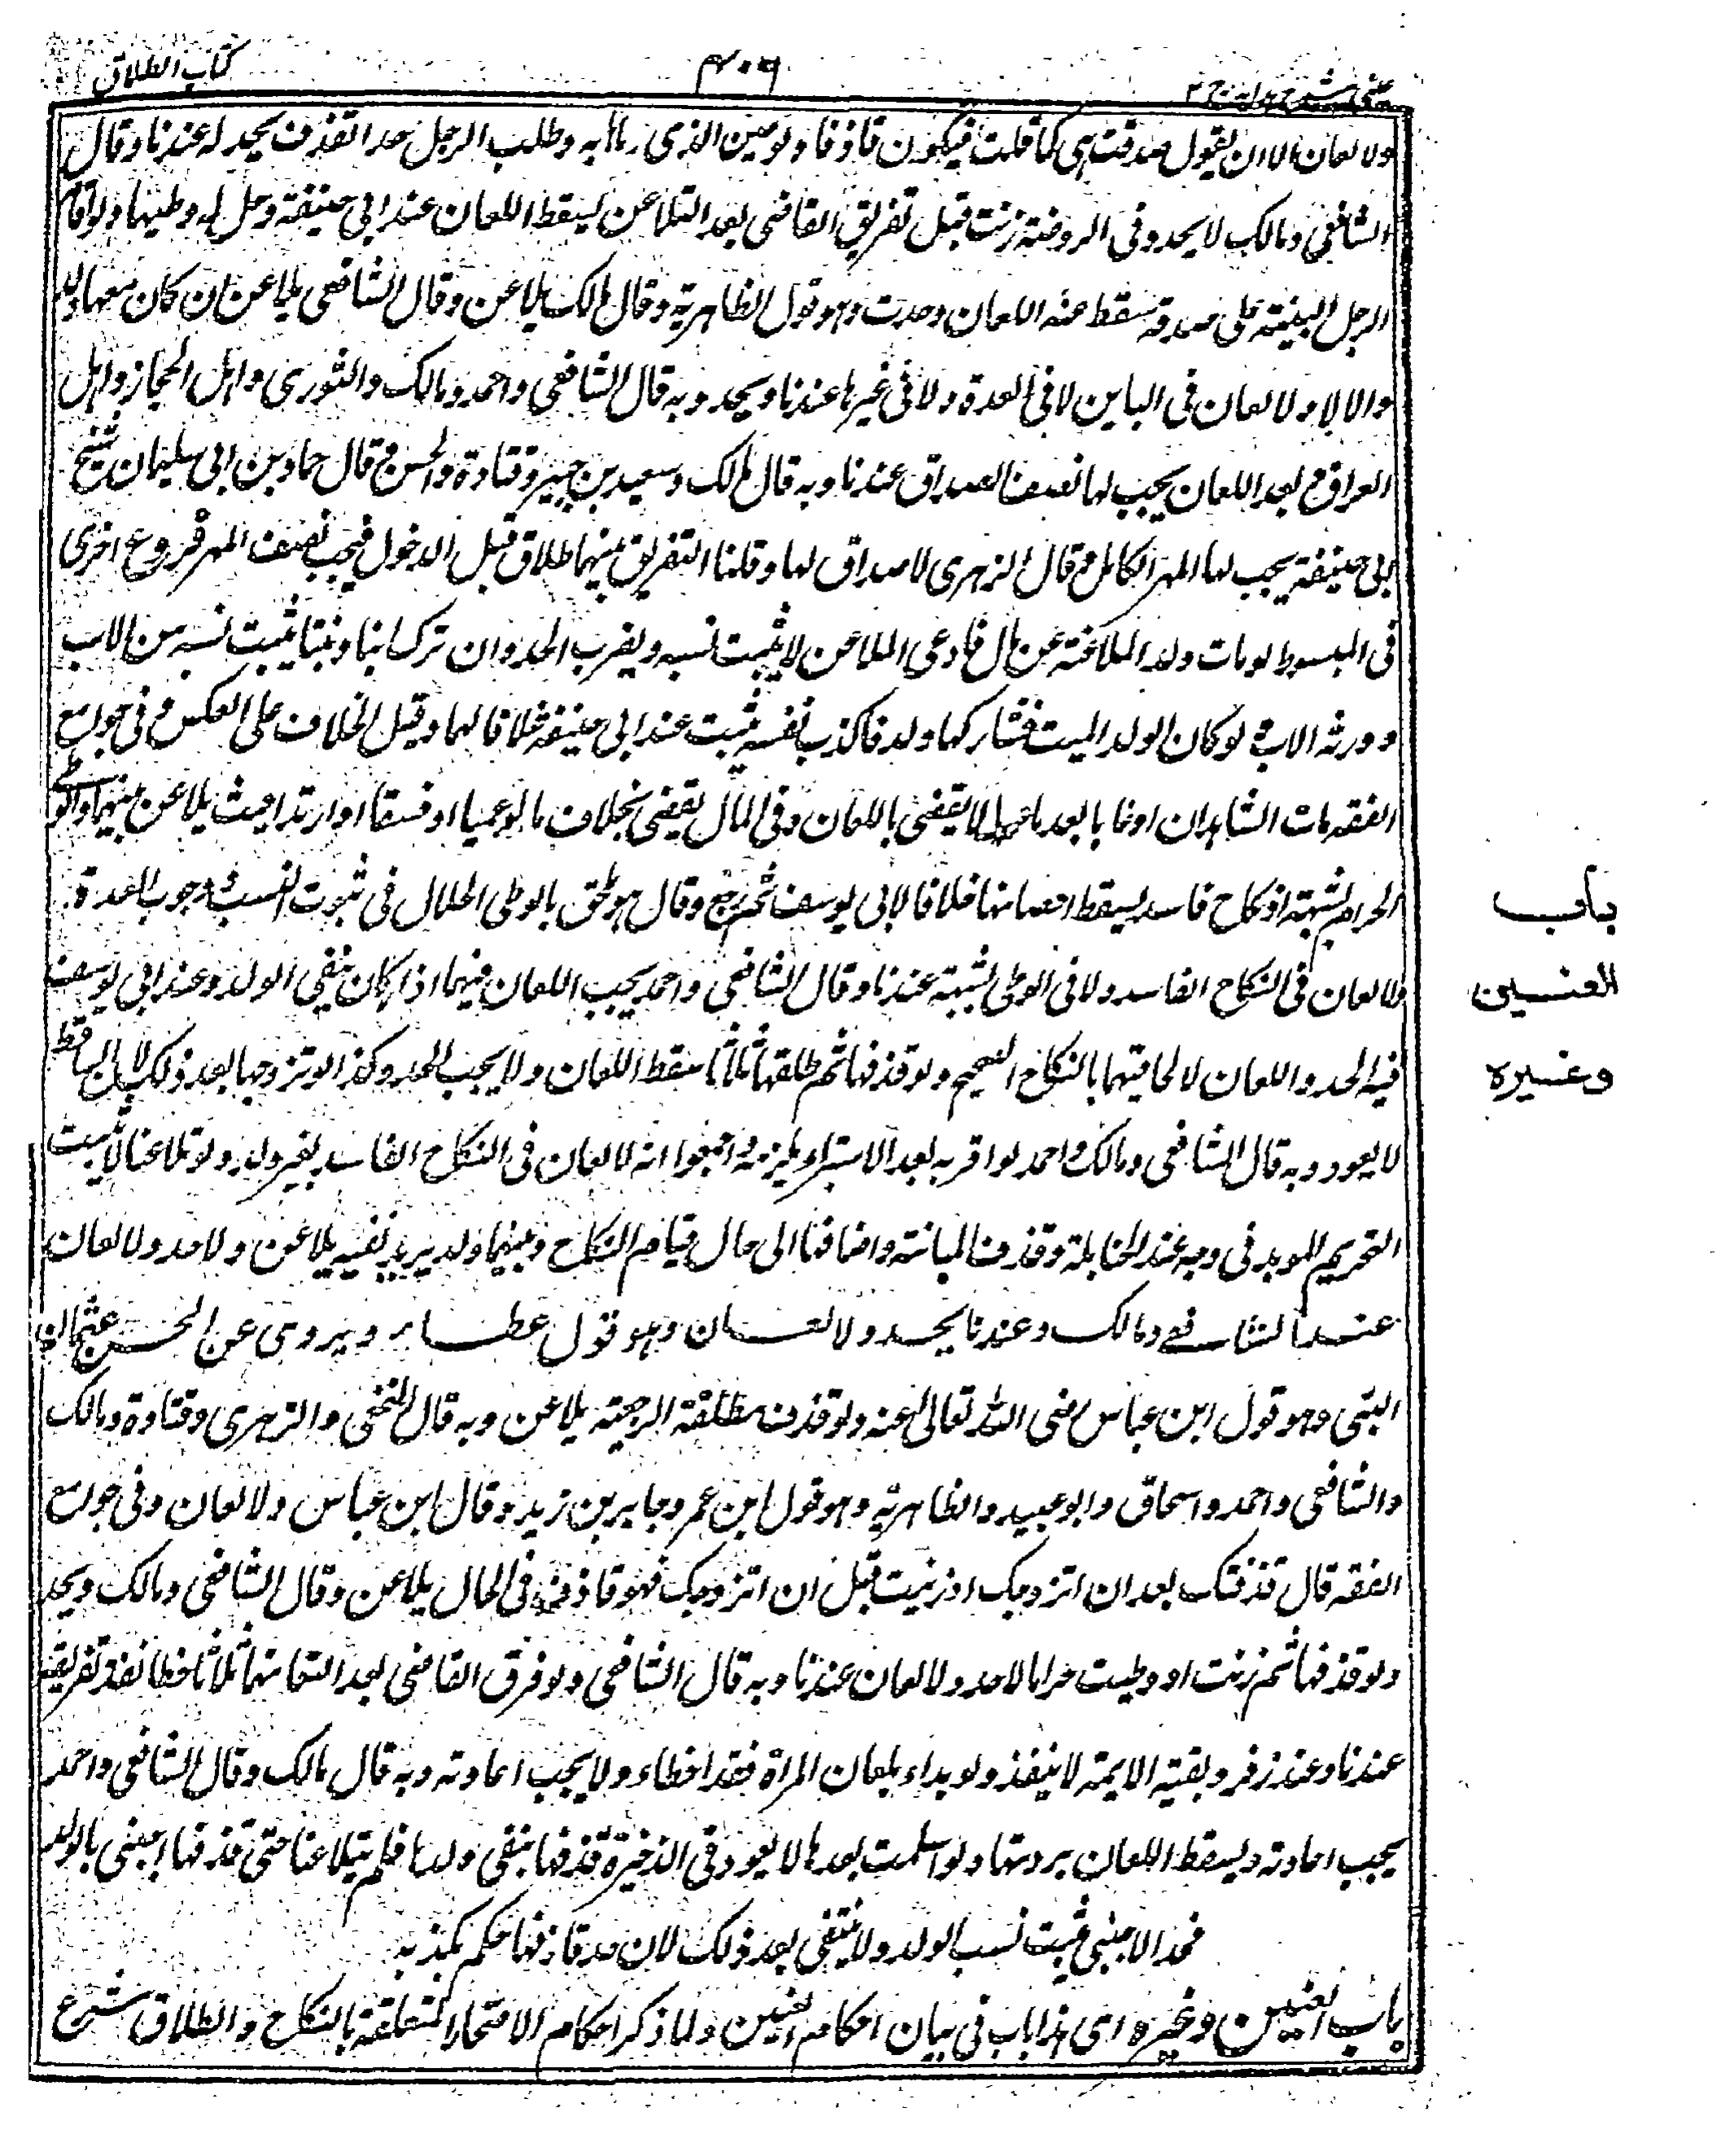 عینی شرح ہدایہ ج ۲
۴۰۹
کتاب الطلاق
ولا لعان الا ان یقول صدقت ہی کما قلت فیکون قاذفا ولو عین الذی رماہا به وطلب الرجل حد القذف یحد له عندنا وقال
الشافعی ومالک لا یحد وفی الروضة زنت قبل تفریق القاضی بعد التلاعن یسقط اللعان عند ابی حنیفة وحل له وطیها ولو اقام
الرجل البینة علی صدقه سقط عنه اللعان وحدت وہو قول الظاہریة وقال مالک یلاعن وقال الشافعی یلاعن ان کان معها ولد
والا لا ولا لعان فی الباین لا فی العدة ولا فی غیرہا عندنا ویحد وبه قال الشافعی واحمد ومالک والثوری واہل الحجاز واہل
العراق م بعد اللعان یجب لها نصف الصداق عندنا وبه قال مالک وسعید بن جبیر وقتادة والحسن م قال حماد بن ابی سلیمان شیخ
ابی حنیفة یجب لها المهر الکامل م قال الزہری لا صداق لها وقلنا التفریق بینهما طلاق قبل الدخول فیجب نصف المهر فروع اخری
فی المبسوط لو مات ولد الملاعنة عن مال فادعی الملاعن لا یثبت نسبه ویضرب الحد وان ترک ابنا وبنتا یثبت نسبه من الاب
وورثه الاب م لو کان الولد المیت ولد فاکذب نفسه یثبت عند ابی حنیفة خلافا لهما وقیل الخلاف علی العکس م فی جوامع
الفقه مات الشاہدان او غابا بعد ما لا یقضی باللعان وفی المال یقضی بخلاف ما لو عمیا او فسقا او ارتدا حیث یلاعن بینهما والوطی
الحرام بشبهة او نکاح فاسد یسقط احصانها خلافا لابی یوسف ثم رجع وقال ہو ملحق بالوطی الحلال فی ثبوت النسب ووجوب العدة
ولا لعان فی النکاح الفاسد ولا فی الوطی بشبهة عندنا وقال الشافعی واحمد یجب اللعان فیهما اذا کان ینفی الولد وعند ابی یوسف
فیه الحد واللعان لالحاقهما بالنکاح الصحیح ولو قذفها ثم طلقها ثلاثا سقط اللعان ولا یجب الحد وکذا لو تزوجها بعد ذلک لان الساقط
لا یعود وبه قال الشافعی ومالک واحمد لو اقر به بعد الاستبراء یلزمه واجمعوا انه لا لعان فی النکاح الفاسد بغیر ولد ولو تلاعنا لا یثبت
التحریم الموبد فی وجه عند الحنابلة وقذف المبانة واضافها الی حال قیام النکاح وبینهما ولد یرید نفیه یلاعن ولا حد ولا لعان
عند الشافعی ومالک وعندنا یحد ولا لعان وہو قول عطاء ویروی عن الحسن عثمان
البتی وہو قول ابن عباس رضی الله تعالی عنه ولو قذف مطلقة الرجعیة یلاعن وبه قال النخعی والزہری وقتادة ومالک
والشافعی واحمد واسحاق وابو عبید والظاہریة وہو قول ابن عمر وجابر بن زید وقال ابن عباس ولا لعان وفی جوامع
الفقه قال قذفتک بعد ان اتزوجک او زنیت قبل ان اتزوجک فهو قاذف فی الحال یلاعن وقال الشافعی ومالک ویحد
ولو قذفها ثم زنت او وطیت حراما لا حد ولا لعان عندنا وبه قال الشافعی ولو فرق القاضی بعد التعانهما ثلاثا خطا نفذ تفریقه
عندنا وعند زفر وبقیة الایمة لا ینفذ ولو بداء بلعان المراة فقد اخطاء ولا یجب اعادته وبه قال مالک وقال الشافعی واحمد
یجب اعادته ویسقط اللعان بردتها ولو اسلمت بعدہا لا یعود وفی الذخیرة قذفها بنفی ولدہا فلم یتلاعنا حتی قذفها اجنبی بالولد
فحد الاجنبی یثبت نسب الولد ولا ینتفی بعد ذلک لان حد قاذفها حکم بکذبه
باب العنین وغیرہ ای ہذا باب فی بیان احکام العنین ولما ذکر احکام الاصحاء المتعلقة بالنکاح والطلاق شرع
باب
العنین
وغیرہ